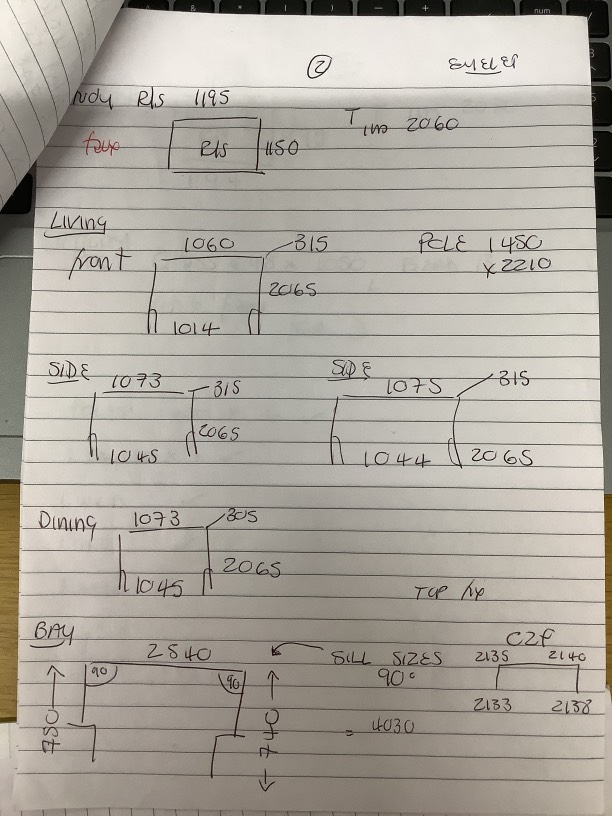 ②
EYELET
R/S 1195
faux
R/S 1150
2060
LIVING
front
1060 315
2065
1014
1450
x2210
SIDE
1073 315
2065
1045
SIDE
1075 315
1044 2065
Dining
1073 305
2065
1045
TOP fix
BAY
2540
90 90
750
740
SILL SIZES
90°
= 4030
2135 2140
2133 2138